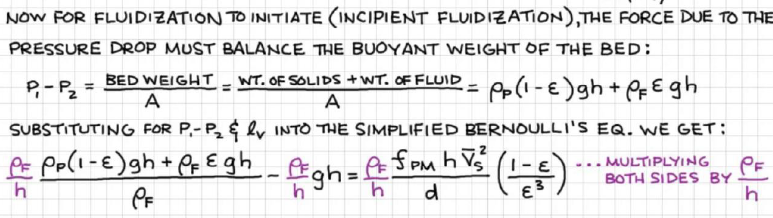 NOW FOR FLUIDIZATION TO INITIATE (INCIPIENT FLUIDIZATION), THE FORCE DUE TO THE
PRESSURE DROP MUST BALANCE THE BUOYANT WEIGHT OF THE BED:
P₁-P₂ = BED WEIGHT/A = WT. OF SOLIDS + WT. OF FLUID/A = ρ_P(1-ε)gh + ρ_F ε gh
SUBSTITUTING FOR P₁-P₂ & l_v INTO THE SIMPLIFIED BERNOULLI'S EQ. WE GET:
ρ_F/h (ρ_P(1-ε)gh + ρ_F ε gh)/ρ_F - ρ_F/h gh = ρ_F/h (f_PM h V̄_s²)/d ((1-ε)/ε³) ... MULTIPLYING BOTH SIDES BY ρ_F/h